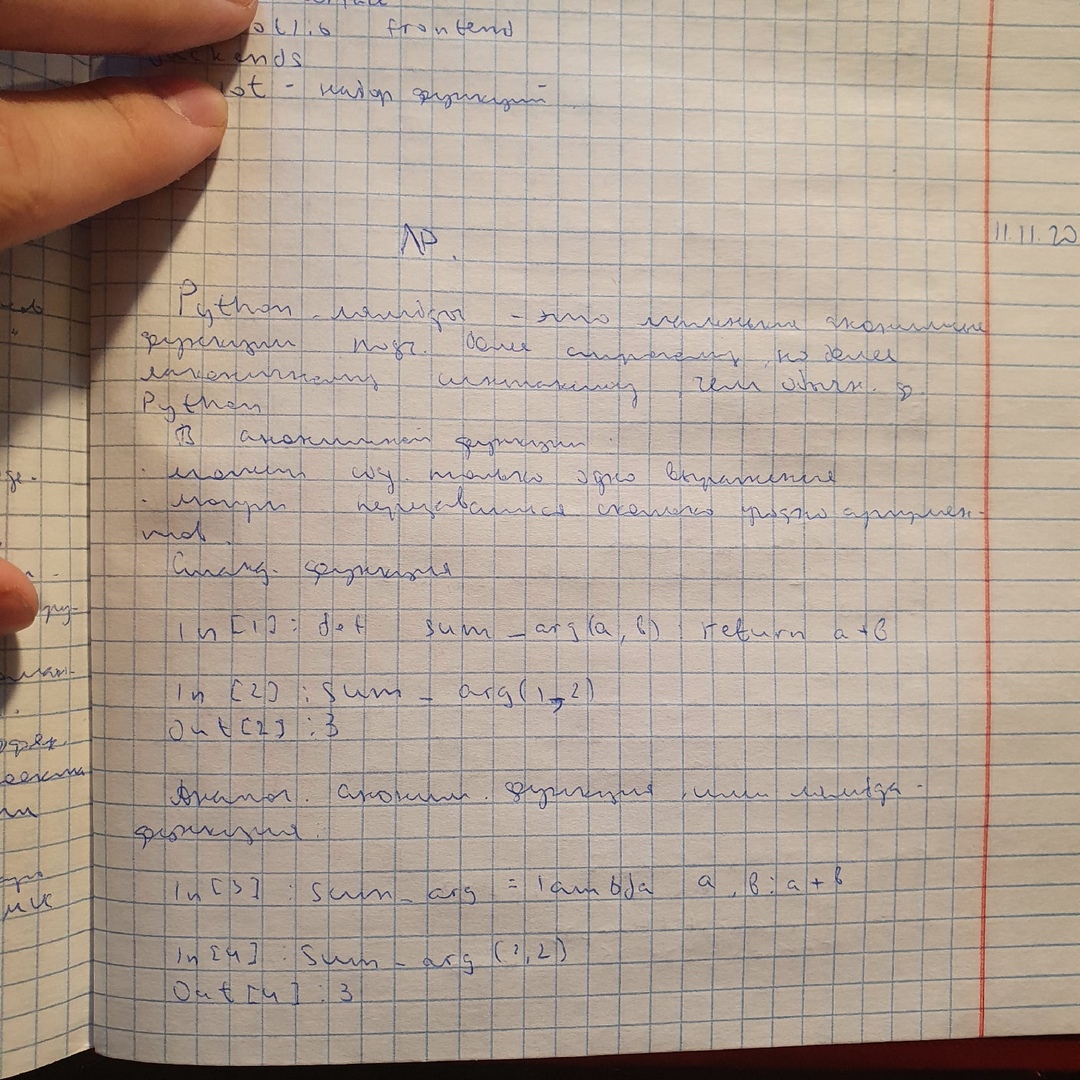 frontend
ckends
iot - набор функций
ЛР.
11.11.20
Python-лямбды - это маленькие анонимные
функции подч. более строгому, но более
лаконичному синтаксису, чем обычн. ф.
Python
В анонимной функции:
· может сод. только одно выражение
· могут передаваться сколько угодно аргумен-
тов.
Станд. функция
In [1]: def sum_arg(a, b): return a+b
In [2]: sum_arg(1,2)
Out[2]: 3
Аналог. аноним. функция, или лямбда-
функция:
In[3]: sum_arg = lambda a, b: a+b
In[4]: sum_arg (1,2)
Out[4]: 3